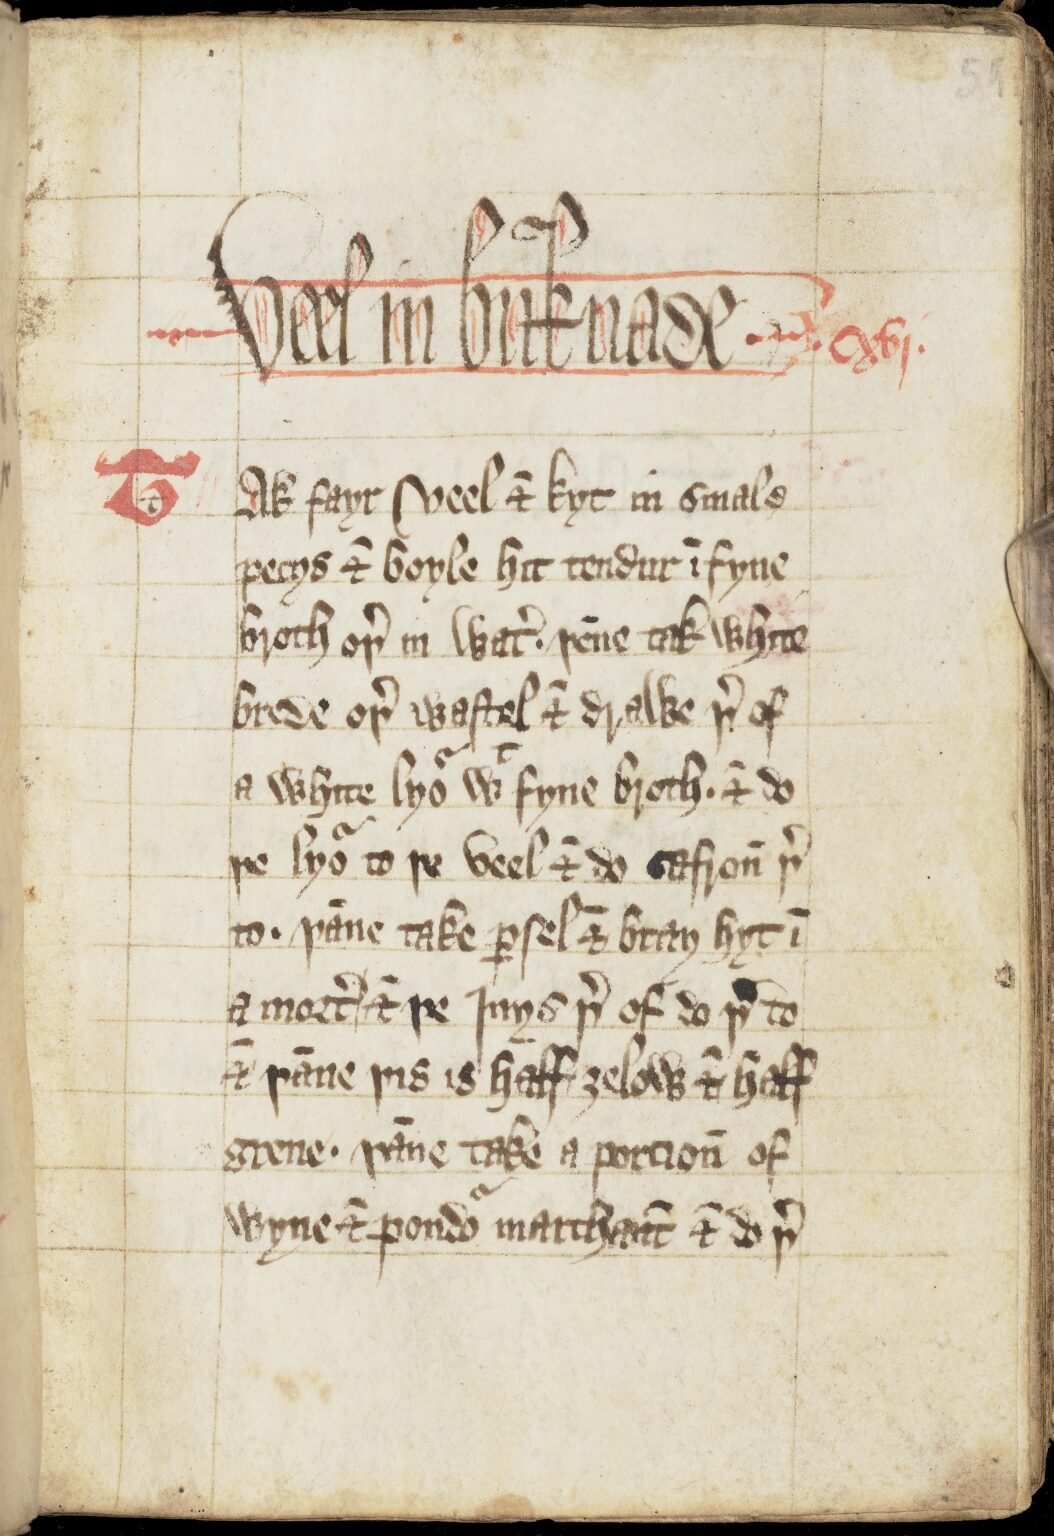 55
Veel in buknade .cxvj.
TAk fayr veel & kyt in smale
pecys & boyle hit tendur ī fyne
broth oþͬ in watͬ. þēne tak white
brede oþͬ wastel & drawe þͬ of
a white lyoͬ wͭ fyne broth. & do
þe lyoͬ to þe veel & do safron̄ þͬ
to. þāne take ꝑsel & bray hyt ī
a mortͬ & þe Juys þͬ of do þͬ to
& þāne þis is half ȝelow & half
grene. þāne take a porcion̄ of
wyne & poudoͬ marchant & do þͬ